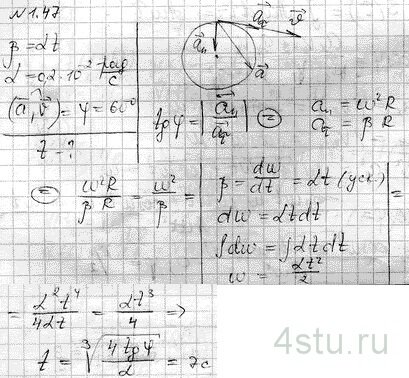 N 1.47
β = αt
α = 0,2·10⁻² рад/с
(a⃗, v⃗) = φ = 60°
t - ?
a⃗τ v⃗
a⃗n
a⃗
tg φ = |a⃗n / a⃗τ| ⊜
an = ω²R
aτ = βR
⊜ ω²R / βR = ω² / β = | β = dω/dt = αt (уск.) | =
dω = αt dt
∫dω = ∫αt dt
ω = αt²/2
= α²t⁴ / 4αt = αt³ / 4 =>
t = ∛(4 tg φ / α) = 7с
4stu.ru